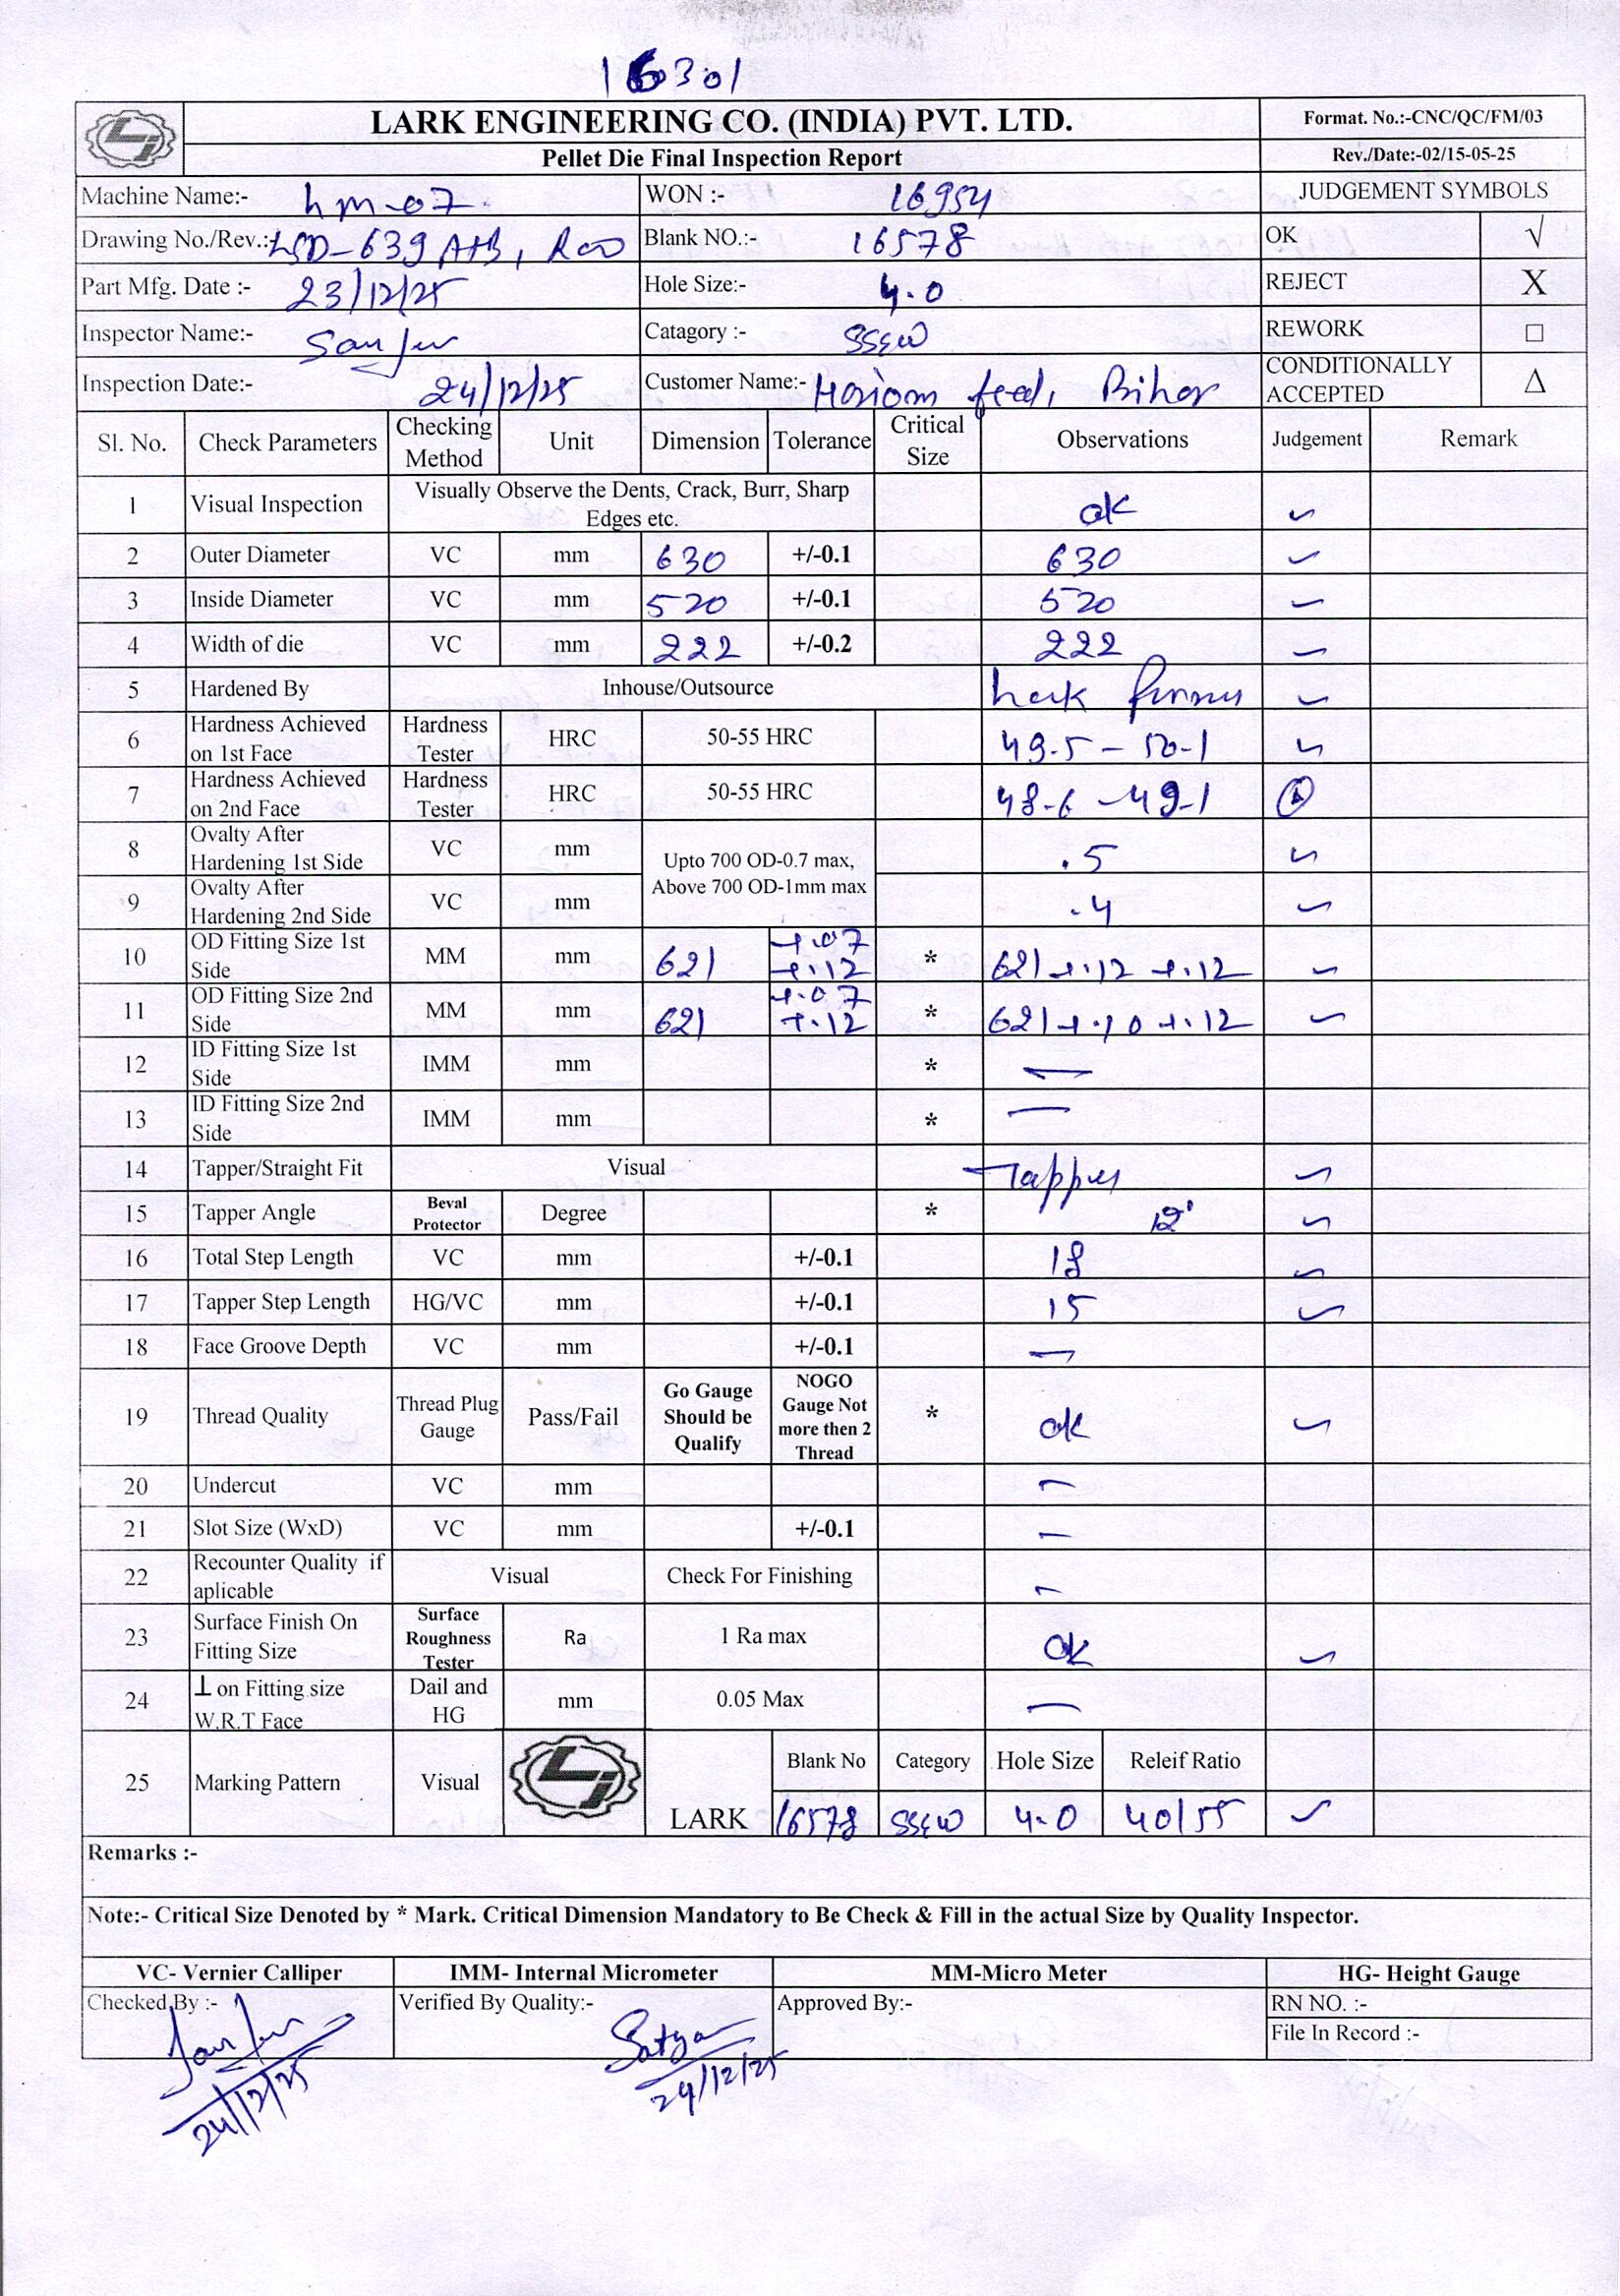 16301
LARK ENGINEERING CO. (INDIA) PVT. LTD.
Format. No.:-CNC/QC/FM/03
Pellet Die Final Inspection Report
Rev./Date:-02/15-05-25
Machine Name:- hm-07 WON :- 16954 JUDGEMENT SYMBOLS
Drawing No./Rev.: LSD-639 A+B, R00 Blank NO.:- 16578 OK √
Part Mfg. Date :- 23/12/25 Hole Size:- 4.0 REJECT X
Inspector Name:- Catagory :- SSEW REWORK □
Inspection Date:- 24/12/25 Customer Name:- Hariom feed, Bihar CONDITIONALLY ACCEPTED Δ
Sl. No. Check Parameters Checking Method Unit Dimension Tolerance Critical Size Observations Judgement Remark
1 Visual Inspection Visually Observe the Dents, Crack, Burr, Sharp Edges etc. ok ✓
2 Outer Diameter VC mm 630 +/-0.1 630 ✓
3 Inside Diameter VC mm 520 +/-0.1 520 ✓
4 Width of die VC mm 222 +/-0.2 222 ✓
5 Hardened By Inhouse/Outsource ✓
6 Hardness Achieved on 1st Face Hardness Tester HRC 50-55 HRC 49.5 - 50-1 ✓
7 Hardness Achieved on 2nd Face Hardness Tester HRC 50-55 HRC 48-6 - 49-1
8 Ovalty After Hardening 1st Side VC mm Upto 700 OD-0.7 max, Above 700 OD-1mm max .5 ✓
9 Ovalty After Hardening 2nd Side VC mm .4 ✓
10 OD Fitting Size 1st Side MM mm 621 +.07 +.12 * 621 +.12 +.12 ✓
11 OD Fitting Size 2nd Side MM mm 621 +.07 +.12 * 621 +.10 +.12 ✓
12 ID Fitting Size 1st Side IMM mm * —
13 ID Fitting Size 2nd Side IMM mm * —
14 Tapper/Straight Fit Visual Tapper ✓
15 Tapper Angle Beval Protector Degree * 12° ✓
16 Total Step Length VC mm +/-0.1 18 ✓
17 Tapper Step Length HG/VC mm +/-0.1 15 ✓
18 Face Groove Depth VC mm +/-0.1 —
19 Thread Quality Thread Plug Gauge Pass/Fail Go Gauge Should be Qualify NOGO Gauge Not more then 2 Thread * ok ✓
20 Undercut VC mm —
21 Slot Size (WxD) VC mm +/-0.1 —
22 Recounter Quality if aplicable Visual Check For Finishing —
23 Surface Finish On Fitting Size Surface Roughness Tester Ra 1 Ra max ok ✓
24 ⊥ on Fitting size W.R.T Face Dail and HG mm 0.05 Max —
25 Marking Pattern Visual LARK Blank No Category Hole Size Releif Ratio
16578 SSEW 4.0 40/55 ✓
Remarks :-
Note:- Critical Size Denoted by * Mark. Critical Dimension Mandatory to Be Check & Fill in the actual Size by Quality Inspector.
VC- Vernier Calliper IMM- Internal Micrometer MM-Micro Meter HG- Height Gauge
Checked By :- Verified By Quality:- Satyam Approved By:- RN NO. :-
File In Record :-
24/12/25 24/12/25